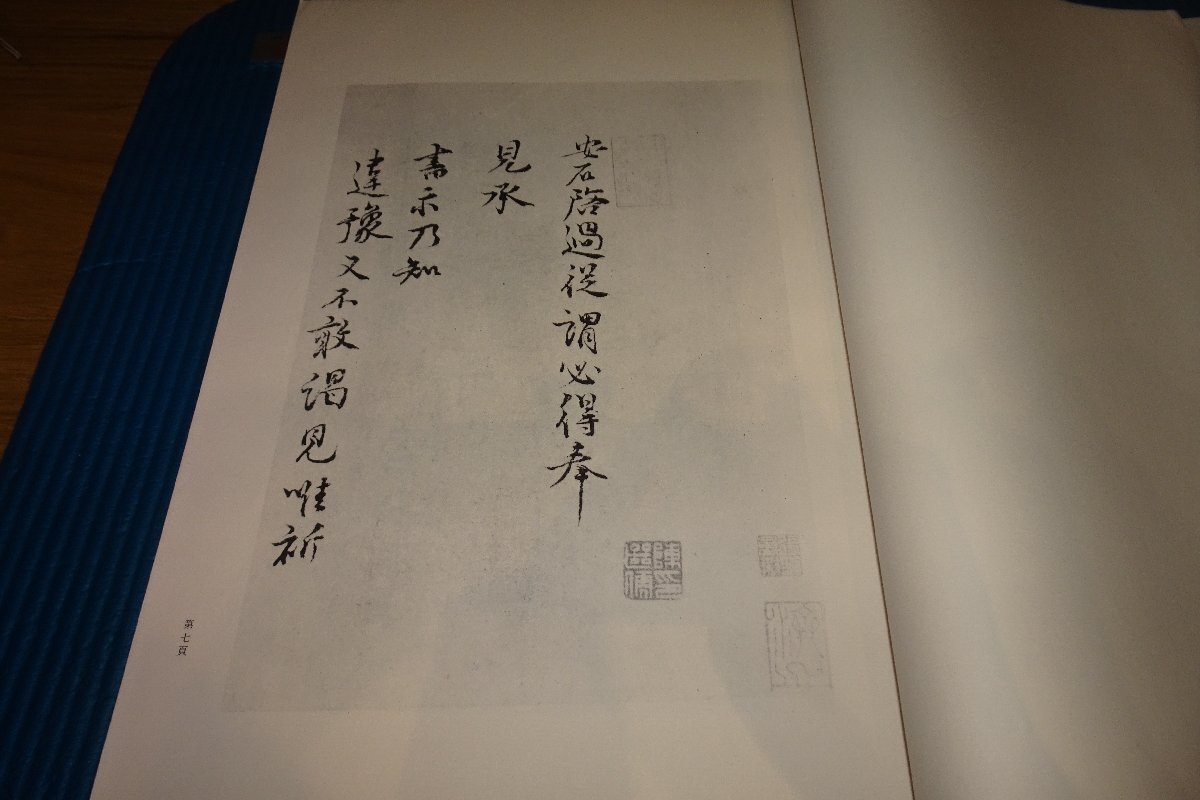 安石啓過從謂必得奉
見承
書示乃知
違豫又不敢謁見唯祈
第七頁